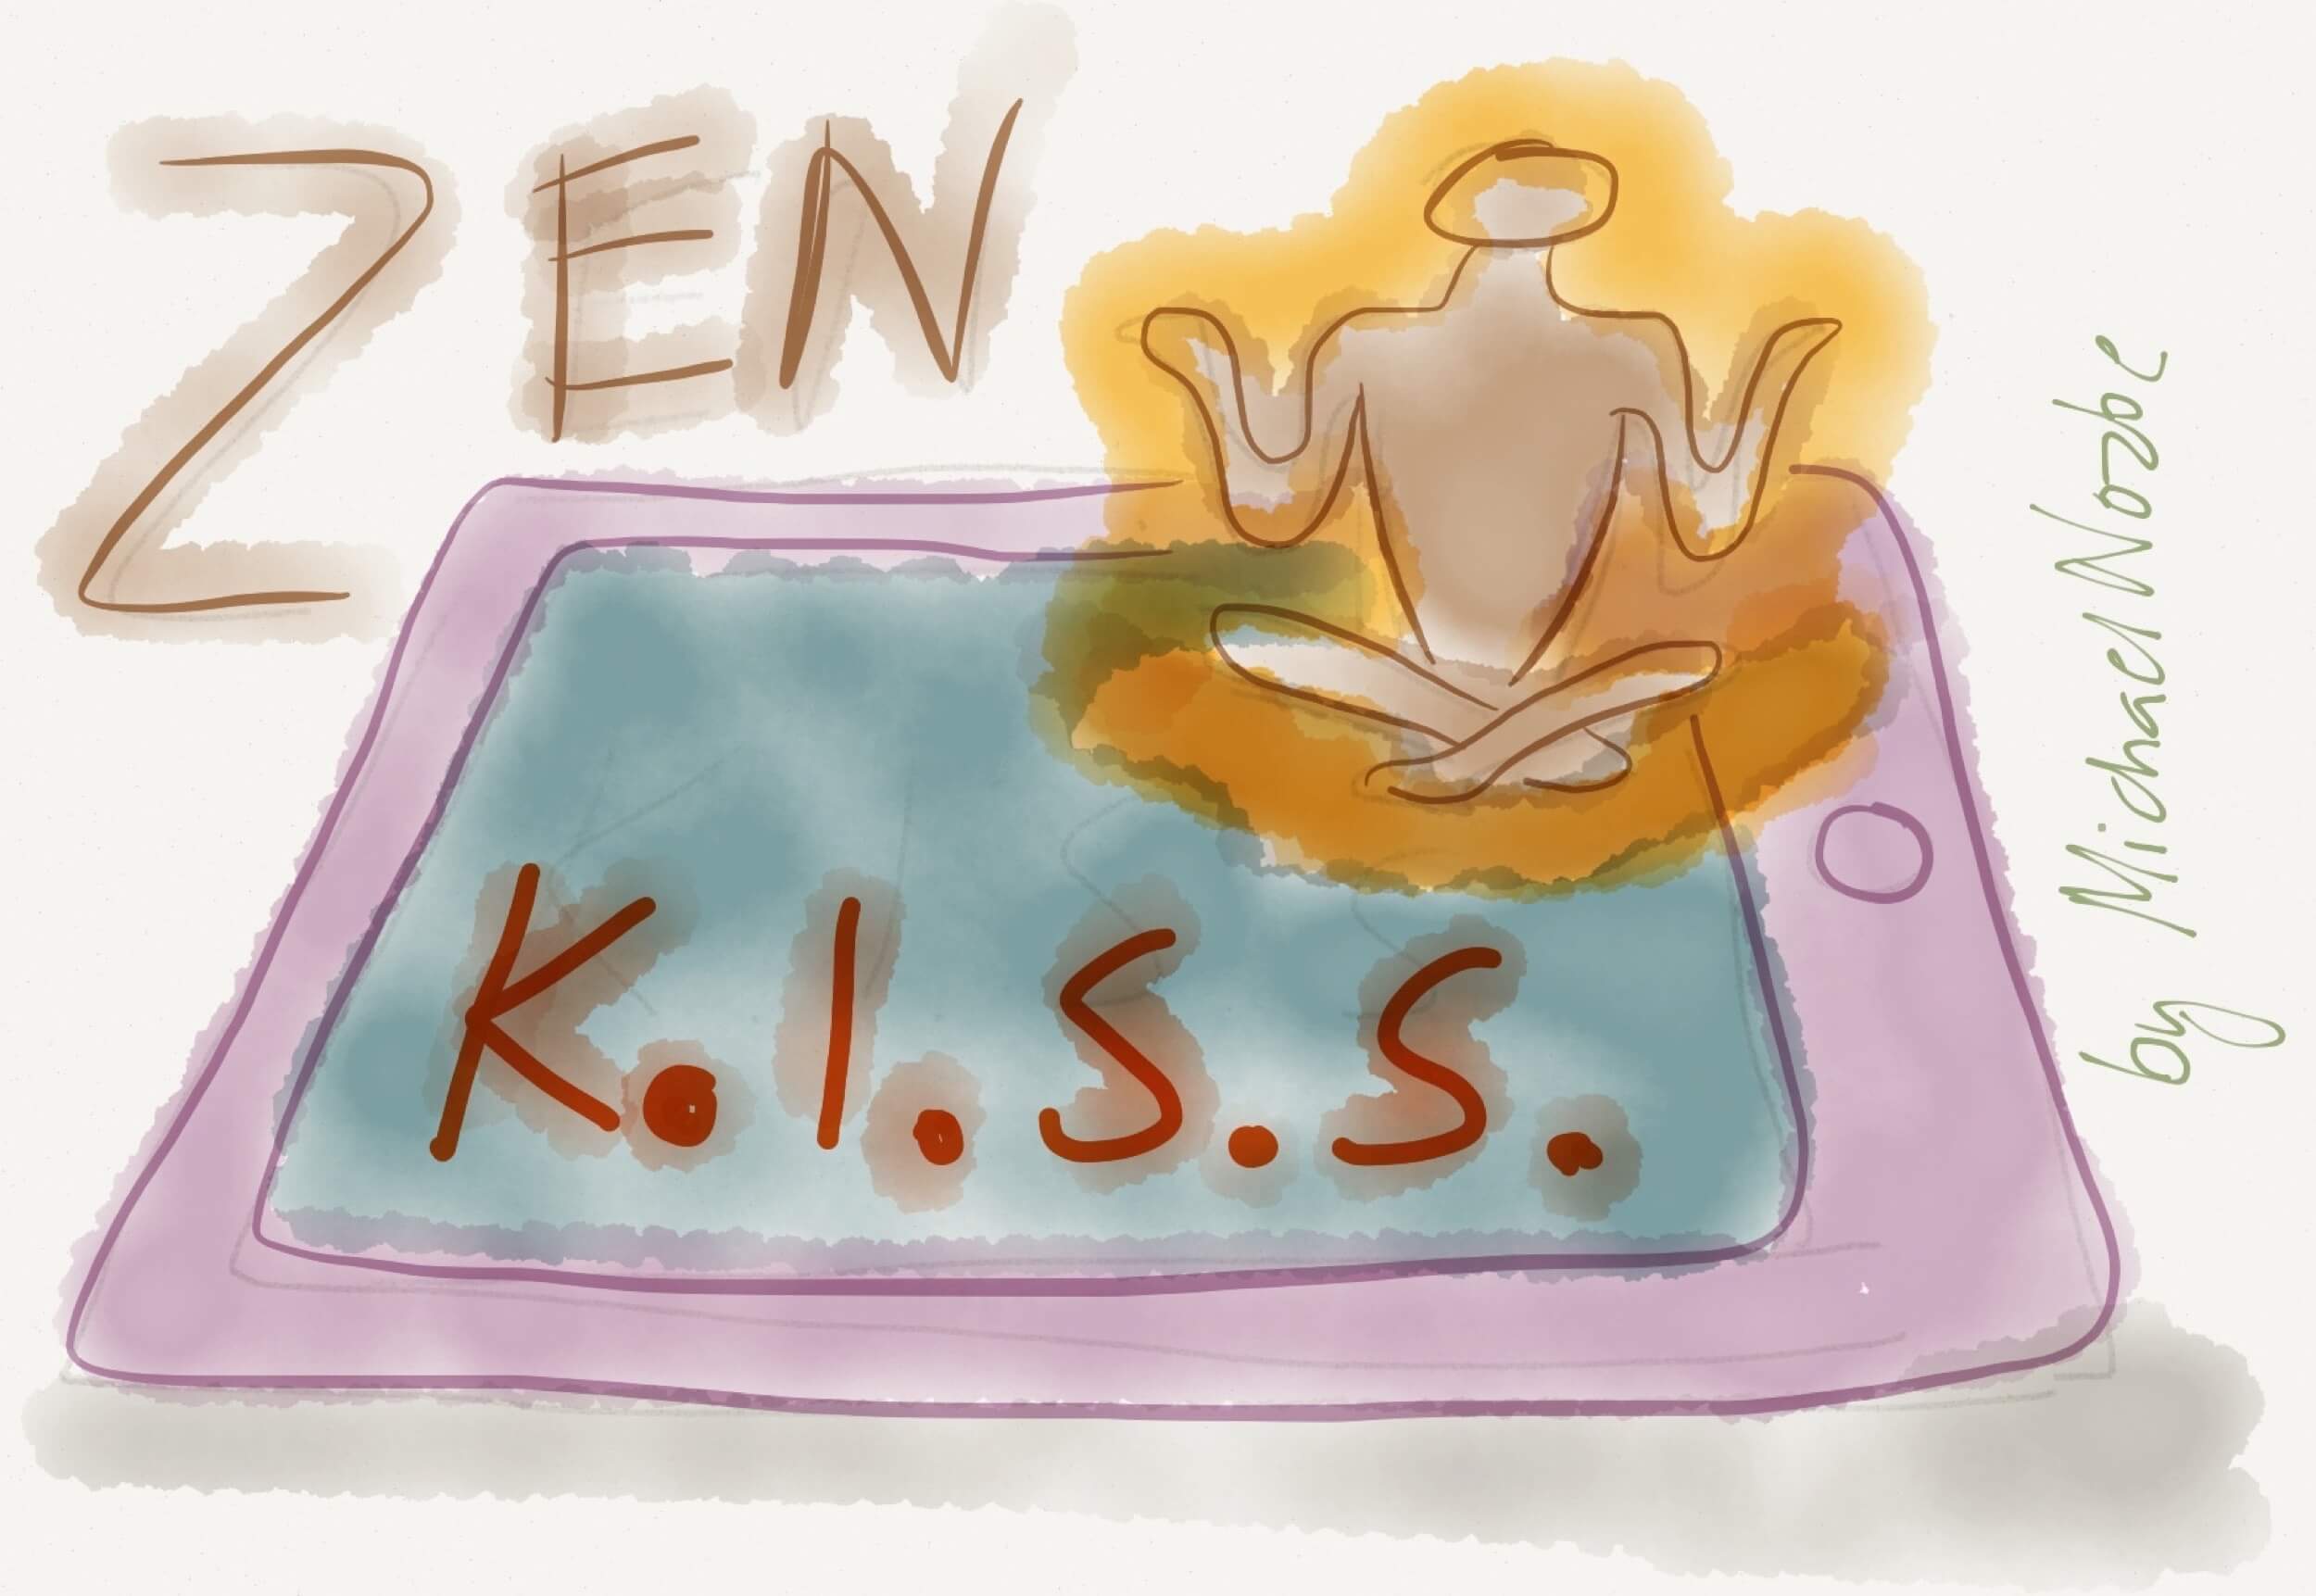 ZEN
K.I.S.S.
by Michael Nozbe